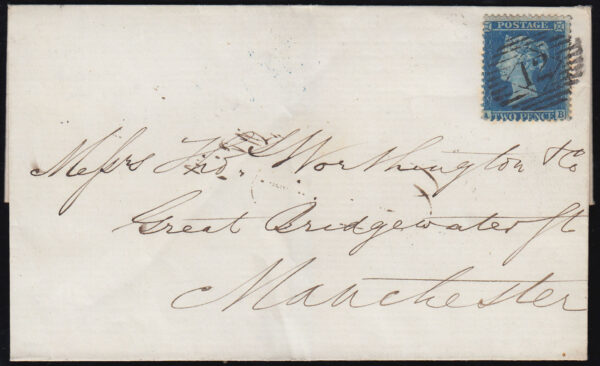 POSTAGE
12
A B
TWO PENCE
Messrs Worthington & Co
Great Bridgewater St
Manchester